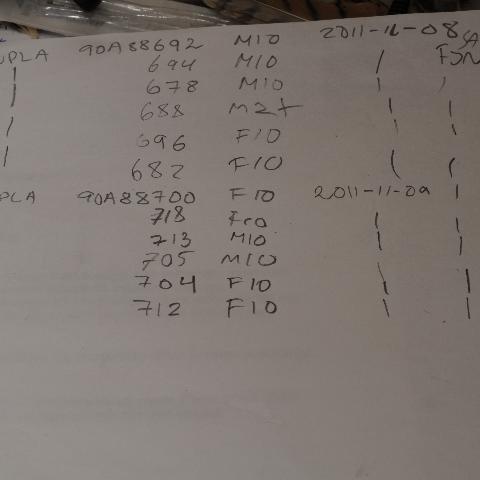 UPLA 90A88692 M10 2011-11-08
| 694 M10 | FJN
| 678 M10 | |
688 M2+ | |
| 696 F10 | |
| 682 F10 | |
PLA 90A88700 F10 2011-11-09 |
718 F10 | |
713 M10 | |
705 M10
704 F10 | |
712 F10 | |